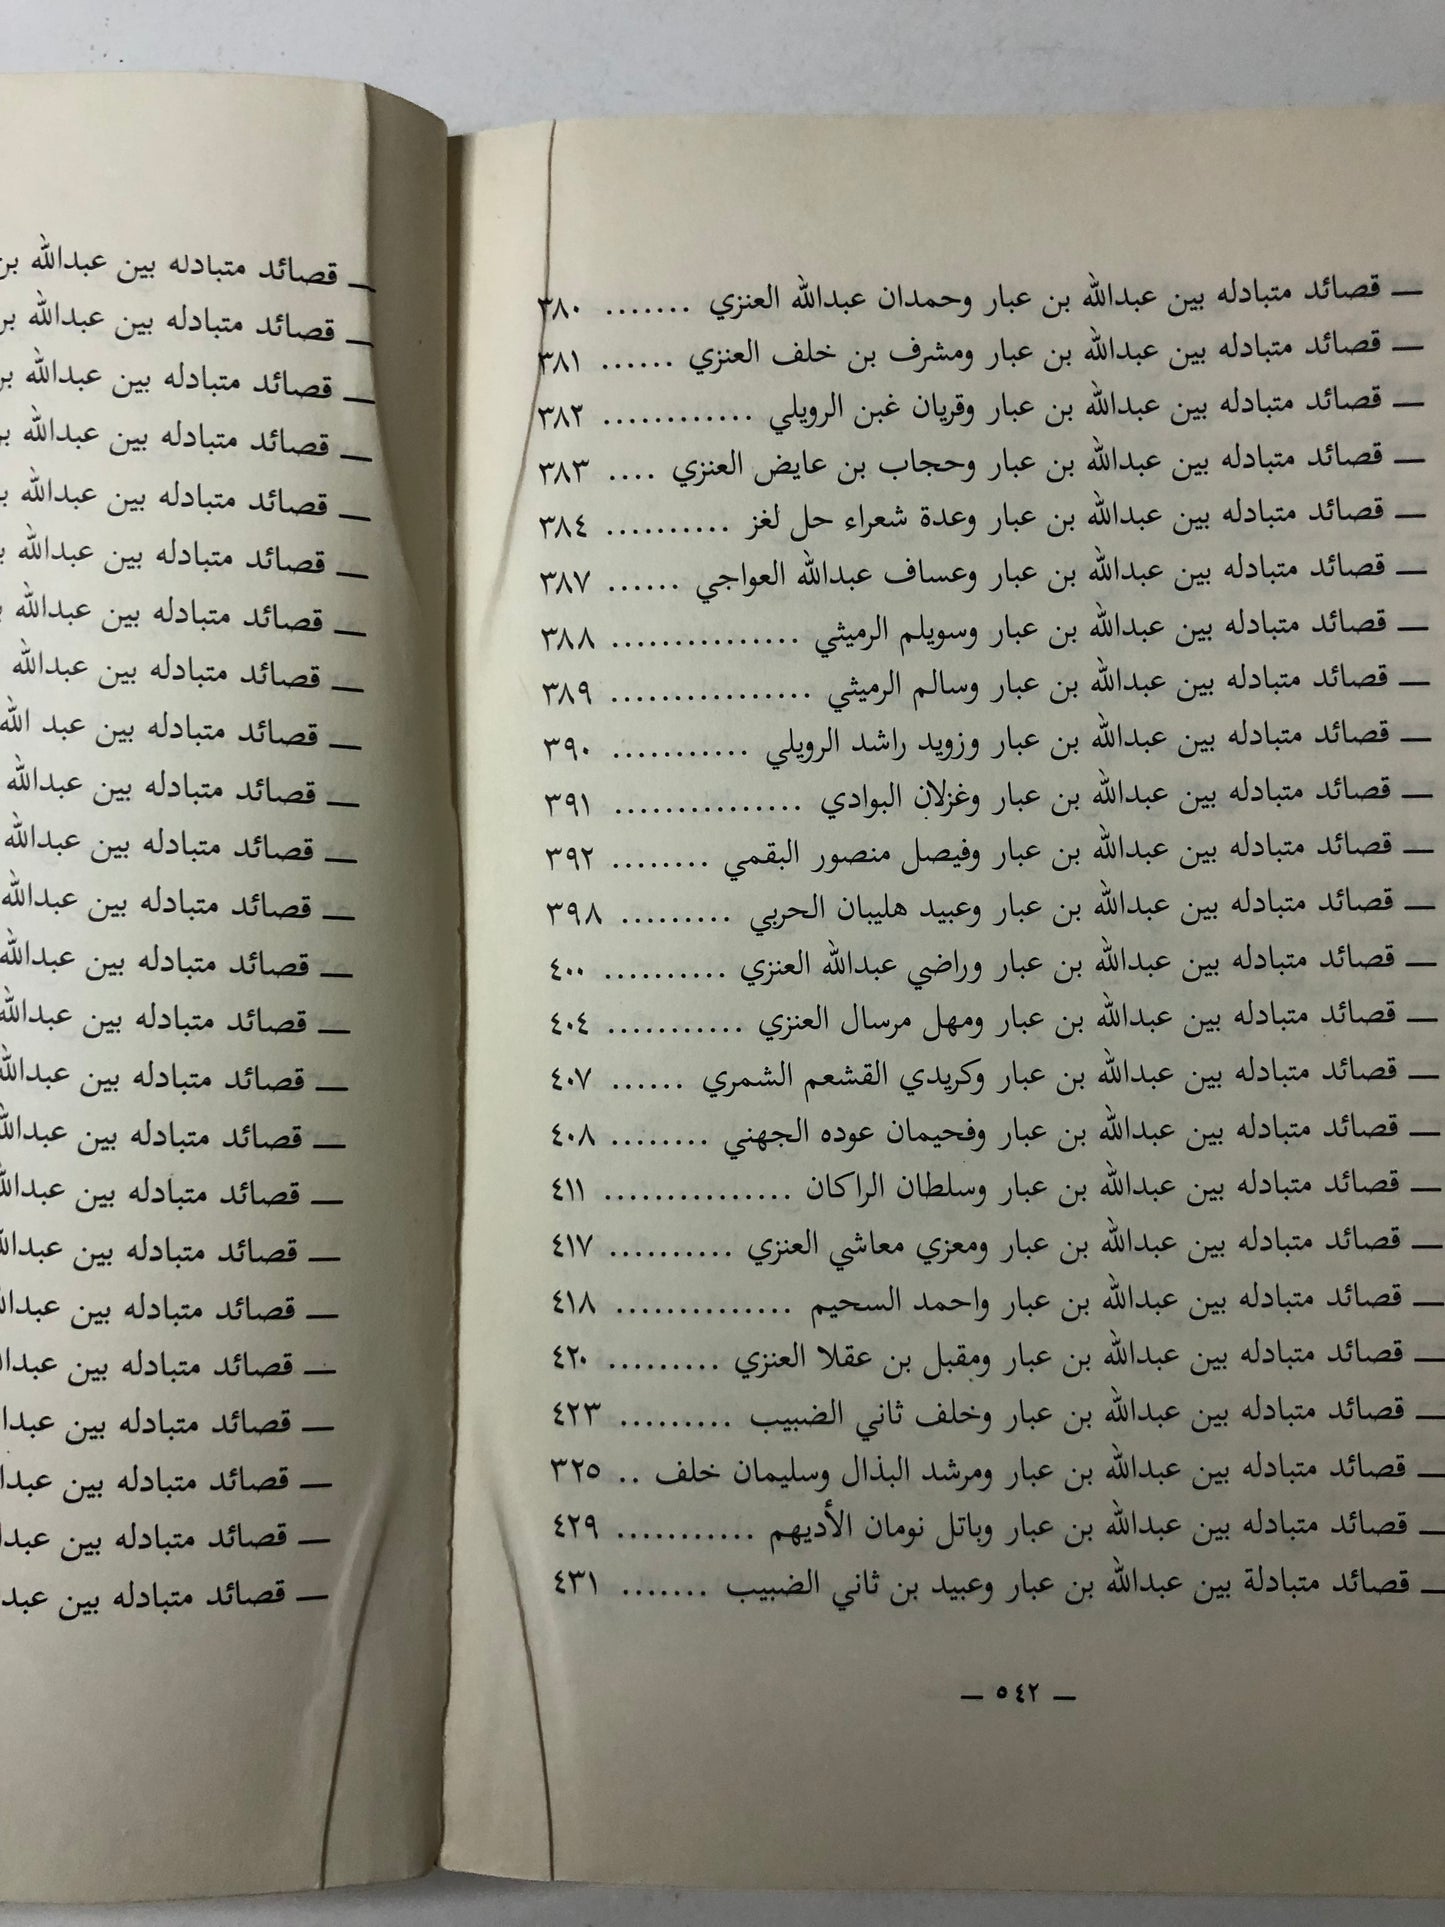 — قصائد متبادله بين عبدالله بن عبار وحمدان عبدالله العنزي ....... ٣٨٠
— قصائد متبادله بين عبدالله بن عبار ومشرف بن خلف العنزي ...... ٣٨١
— قصائد متبادله بين عبدالله بن عبار وقريان غبن الرويلي ............ ٣٨٢
— قصائد متبادله بين عبدالله بن عبار وحجاب بن عايض العنزي .... ٣٨٣
— قصائد متبادله بين عبدالله بن عبار وعدة شعراء حل لغز .......... ٣٨٤
— قصائد متبادله بين عبدالله بن عبار وعساف عبدالله العواجي ...... ٣٨٧
— قصائد متبادله بين عبدالله بن عبار وسويلم الرميثي ............... ٣٨٨
— قصائد متبادله بين عبدالله بن عبار وسالم الرميثي ................ ٣٨٩
— قصائد متبادله بين عبدالله بن عبار وزويد راشد الرويلي ........... ٣٩٠
— قصائد متبادله بين عبدالله بن عبار وغزلان البوادي ............... ٣٩١
— قصائد متبادله بين عبدالله بن عبار وفيصل منصور البقمي ........ ٣٩٢
— قصائد متبادله بين عبدالله بن عبار وعبيد هليبان الحربي ......... ٣٩٨
— قصائد متبادله بين عبدالله بن عبار وراضي عبدالله العنزي .......... ٤٠٠
— قصائد متبادله بين عبدالله بن عبار ومهل مرسال العنزي ........... ٤٠٤
— قصائد متبادله بين عبدالله بن عبار وكريدي القشعم الشمري ...... ٤٠٧
— قصائد متبادله بين عبدالله بن عبار وفحيمان عوده الجهني ........ ٤٠٨
— قصائد متبادله بين عبدالله بن عبار وسلطان الراكان ............... ٤١١
— قصائد متبادله بين عبدالله بن عبار ومعزي معاشي العنزي .......... ٤١٧
— قصائد متبادله بين عبدالله بن عبار واحمد السحيم .............. ٤١٨
— قصائد متبادله بين عبدالله بن عبار ومقبل بن عقلا العنزي ......... ٤٢٠
— قصائد متبادله بين عبدالله بن عبار وخلف ثاني الضبيب ......... ٤٢٣
— قصائد متبادله بين عبدالله بن عبار ومرشد البذال وسليمان خلف .. ٣٢٥
— قصائد متبادله بين عبدالله بن عبار وباتل نومان الأديهم ........... ٤٢٩
— قصائد متبادلة بين عبدالله بن عبار وعبيد بن ثاني الضبيب ....... ٤٣١
— ٥٤٢ —
— قصائد متبادله بين عبدالله بن
— قصائد متبادله بين عبدالله بن
— قصائد متبادله بين عبدالله
— قصائد متبادله بين عبدالله
— قصائد متبادله بين عبدالله
— قصائد متبادله بين عبدالله
— قصائد متبادله بين عبدالله
— قصائد متبادله بين عبدالله
— قصائد متبادله بين عبد الله
— قصائد متبادله بين عبدالله
— قصائد متبادله بين عبدالله
— قصائد متبادله بين عبدالله
— قصائد متبادله بين عبدالله
— قصائد متبادله بين عبدالله
— قصائد متبادله بين عبدالله
— قصائد متبادله بين
— قصائد متبادله بين
— قصائد متبادله بين
— قصائد متبادله بين
— قصائد متبادله بين
— قصائد متبادله بين
— قصائد متبادله بين
— قصائد متبادله بين
— قصائد متبادله بين